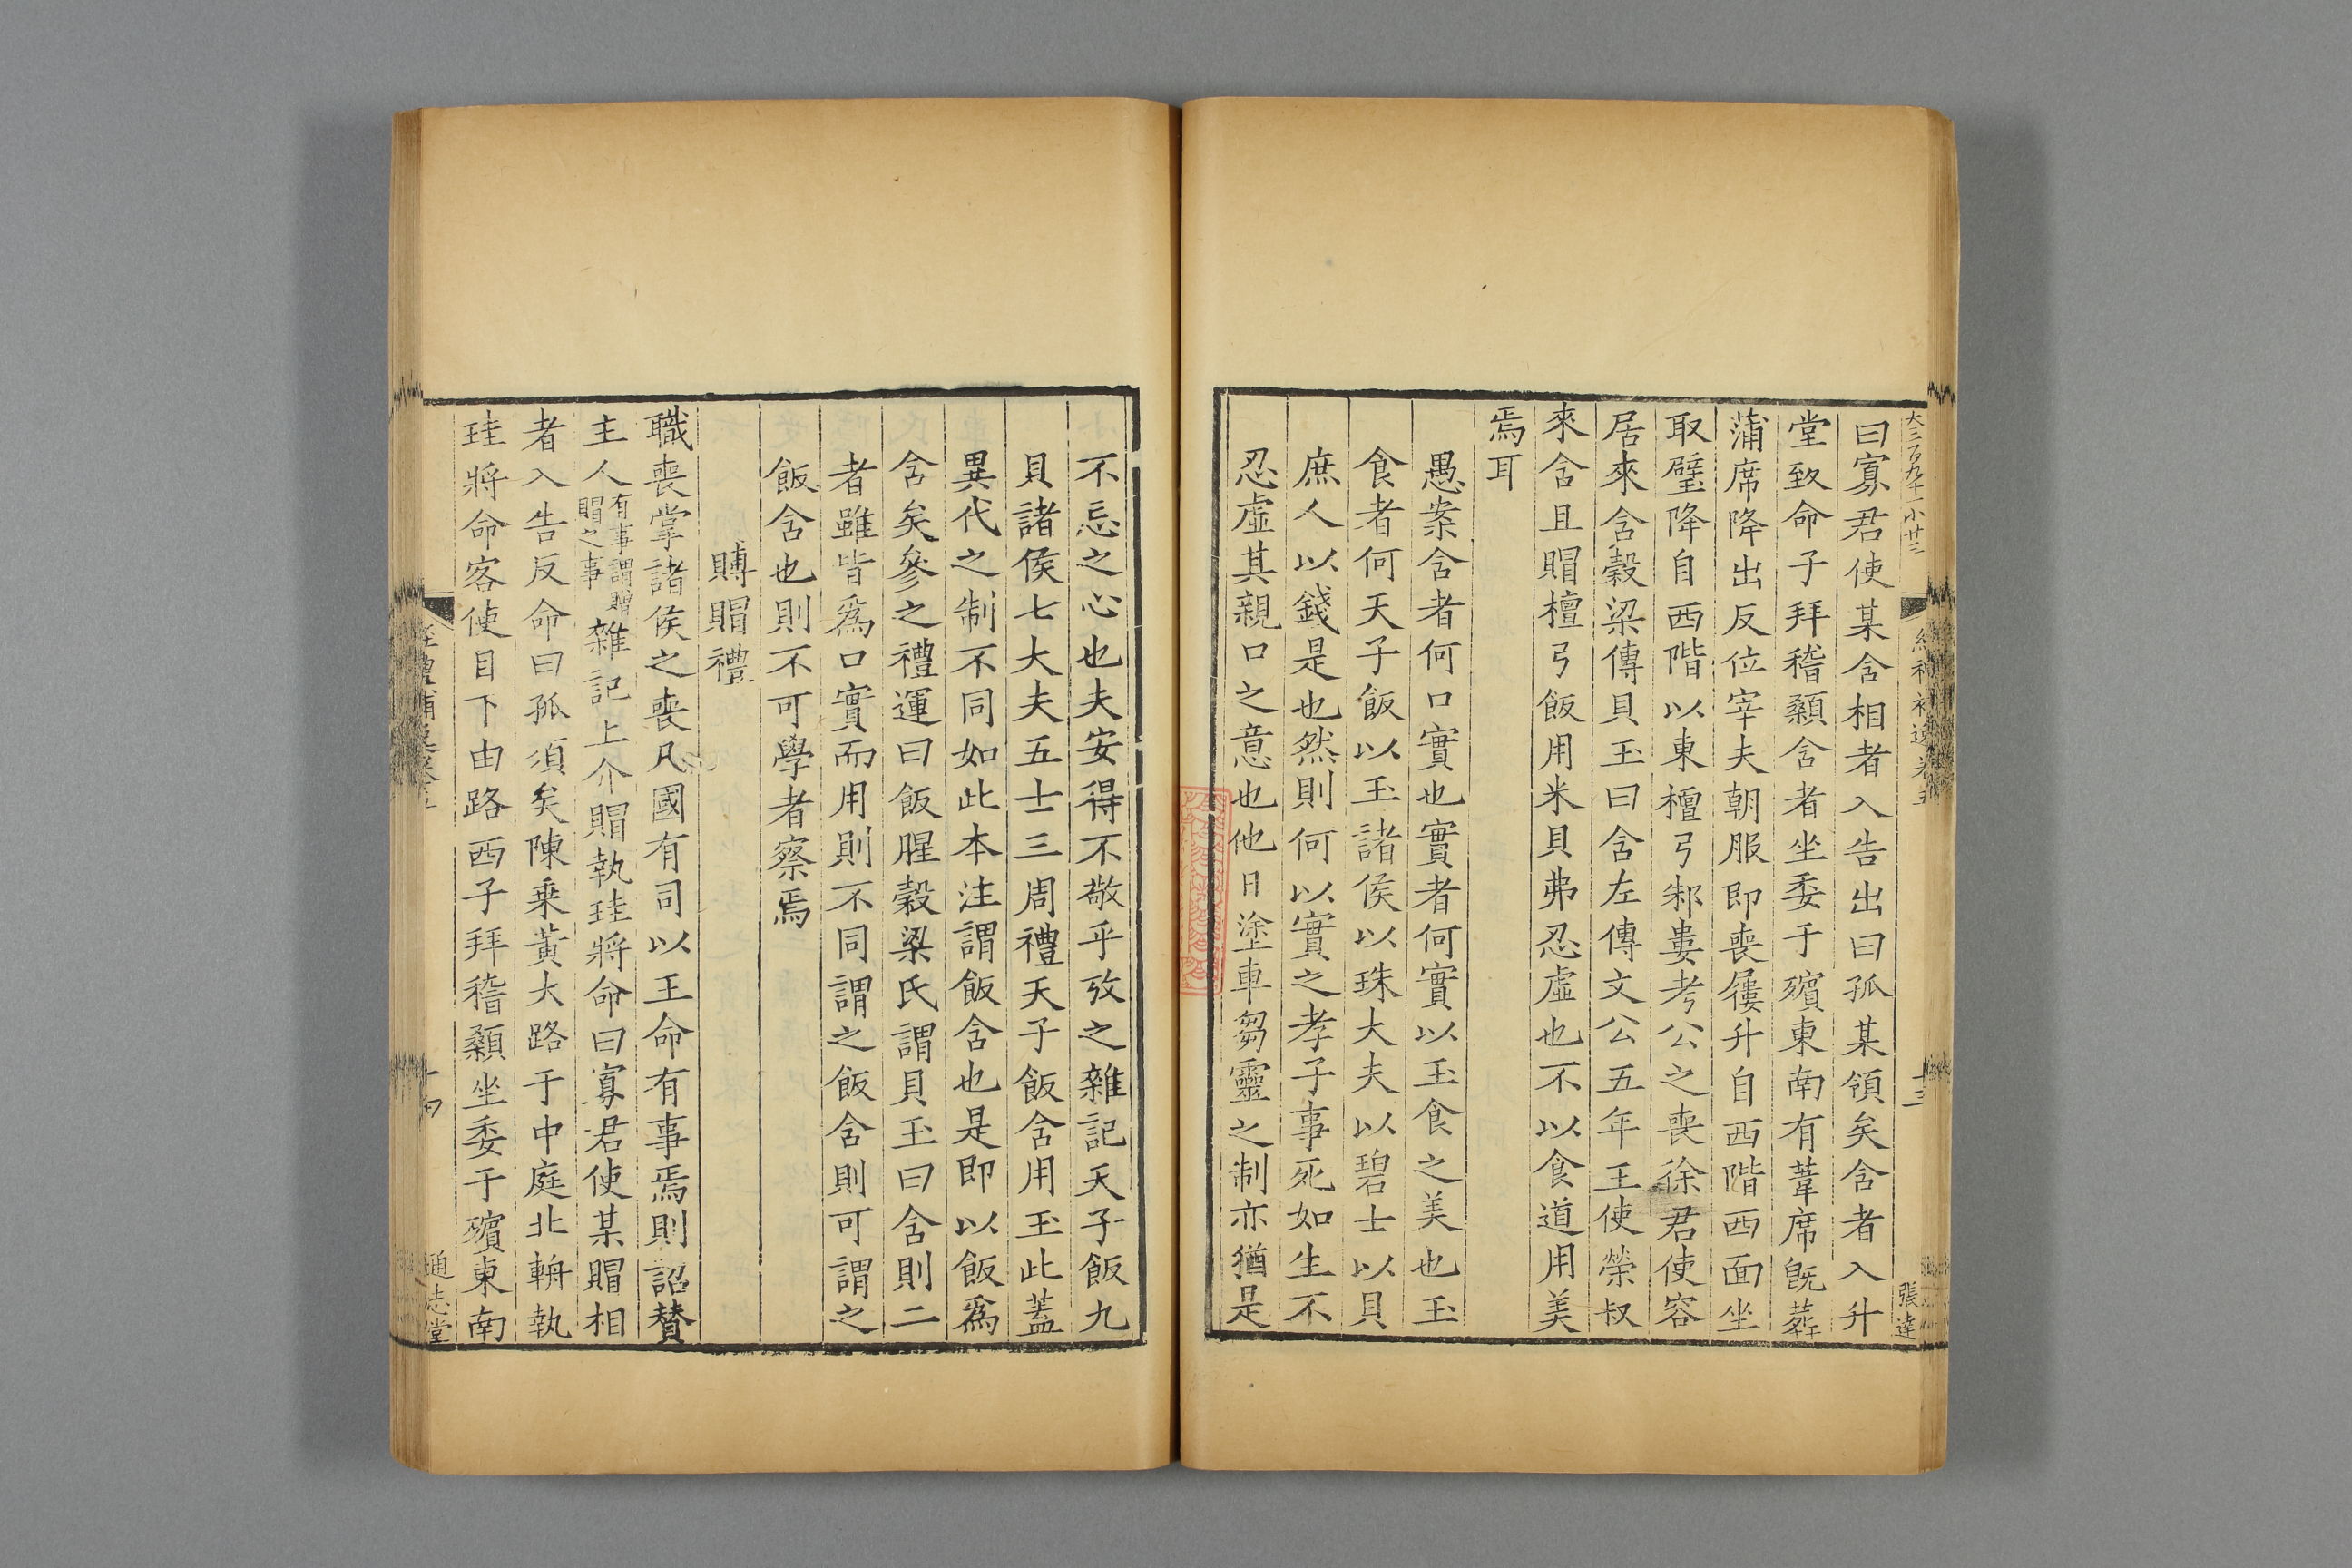 大三百九十一小廿三
十三
張達
曰寡君使某含相者入告出曰孤某須矣含者入升
堂致命子拜稽顙含者坐委于殯東南有葦席旣葬
蒲席降出反位宰夫朝服即喪屨升自西階西面坐
取璧降自西階以東檀弓邾婁考公之喪徐君使容
居來含穀梁傳貝玉曰含左傳文公五年王使榮叔
來含且賵檀弓飯用米貝弗忍虛也不以食道用美
焉耳
愚案含者何口實也實者何實以玉食之美也玉
食者何天子飯以玉諸侯以珠大夫以碧士以貝
庶人以錢是也然則何以實之孝子事死如生不
忍虛其親口之意也他日塗車芻靈之制亦猶是
不忘之心也夫安得不敬乎攷之雜記天子飯九
貝諸侯七大夫五士三周禮天子飯含用玉此蓋
異代之制不同如此本注謂飯含也是即以飯爲
含矣參之禮運曰飯腥穀梁氏謂貝玉曰含則二
者雖皆爲口實而用則不同謂之飯含則可謂之
飯含也則不可學者察焉
賻賵禮
職喪掌諸侯之喪凡國有司以王命有事焉則詔贊
主人有事謂贈賵之事雜記上介賵執珪將命曰寡君使某賵相
者入告反命曰孤須矣陳乗黃大路于中庭北輈執
珪將命客使自下由路西子拜稽顙坐委于殯東南
通志堂